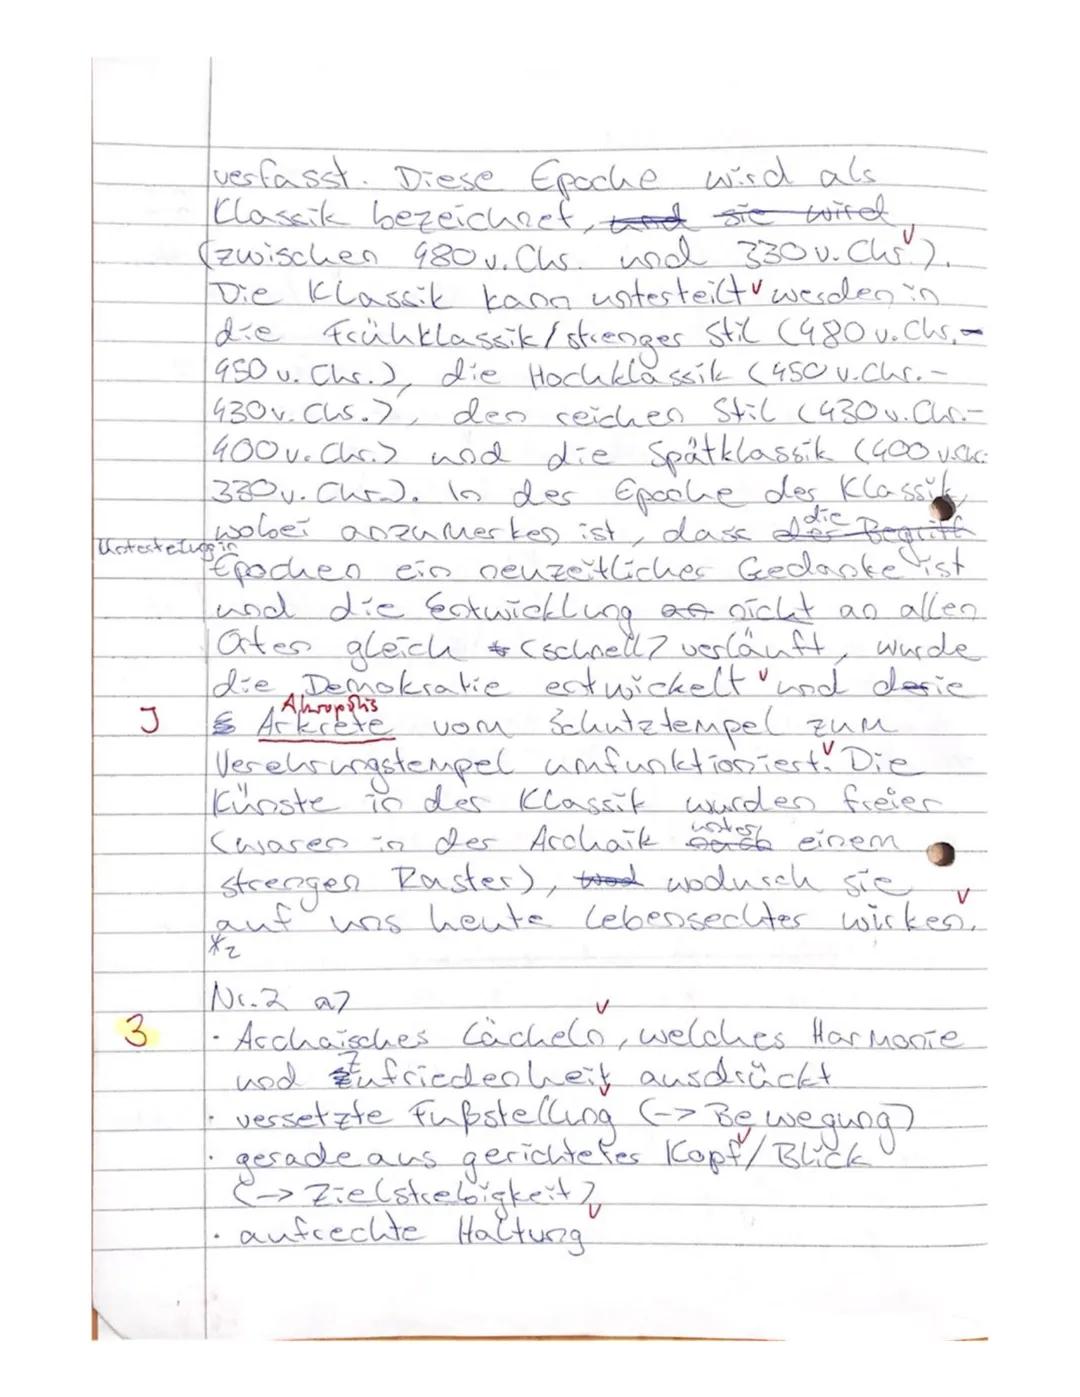 verfasst. Diese Epoche wird als
Klassik bezeichnet, und sie wird
(zwischen 480 v. Chr. und 330 v. Chr.).
Die Klassik kann unterteilt werden in
die Frühklassik/strenger Stil (480 v. Chr.-
450 v. Chr.), die Hochklassik (450 v. Chr.-
430 v. Chr.), den reichen Stil (430 v. Chr.-
400 v. Chr.) und die Spätklassik (400 v. Chr.
330 v. Chr.). In der Epoche der Klassik,
wobei anzumerken ist, dass der die Begriff
Unterteilung in
Epochen ein neuzeitlicher Gedanke ist
und die Entwicklung an nicht an allen
Orten gleich (schnell) verläuft, wurde
die Demokratie entwickelt und die
Akropolis
J Arkrete vom Schutztempel zum
Verehrungstempel umfunktioniert. Die
Künste in der Klassik wurden freier
(waren in der Archaik unter einem
strengen Raster), und wodurch sie
auf uns heute lebensechter wirken.
*2
Nr. 2 a)
3 · Archaisches Lächeln, welches Harmonie
und Zufriedenheit ausdrückt
· versetzte Fußstellung (-> Bewegung)
· geradeaus gerichteter Kopf/Blick
(-> Zielstrebigkeit)
· aufrechte Haltung